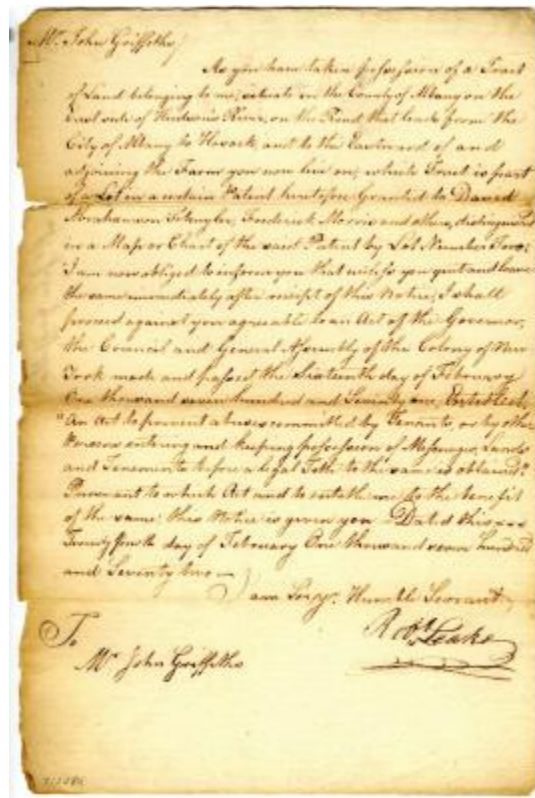 Mr. John Griffiths
As you have taken possession of a Tract
of Land belonging to me, situate in the County of Albany on the
East side of Hudson's River, on the Road that leads from the
City of Albany to Hosack, and to the Eastward of and
adjoining the Farm you now live on, which Tract is part
of a Lot in a certain Patent heretofore Granted to David
Abraham van Frederick Morris and others, distinguished
in a Map or Chart of the said Patent by Lot Number Two;
I am now obliged to inform you that unless you quit and leave
the same immediately after receipt of this Notice, I shall
proceed against you agreable to an Act of the Governor,
the Council and General Assembly of the Colony of New
York made and passed the Sixteenth day of February
One thousand seven hundred and Seventy one, Entitled,
"An Act to prevent abuses committed by Tenants, or by other
Persons entering and keeping possession of Messuages, Lands
and Tenements before a legal Title to the same is obtained"
Pursuant to which Act and to entitle me to the benefit
of the same this Notice is given you Dated this
Twenty fourth day of February One thousand seven hundred
and Seventy two
I am Sir yr. Humble Servant
Robt. Leake
To
Mr. John Griffiths